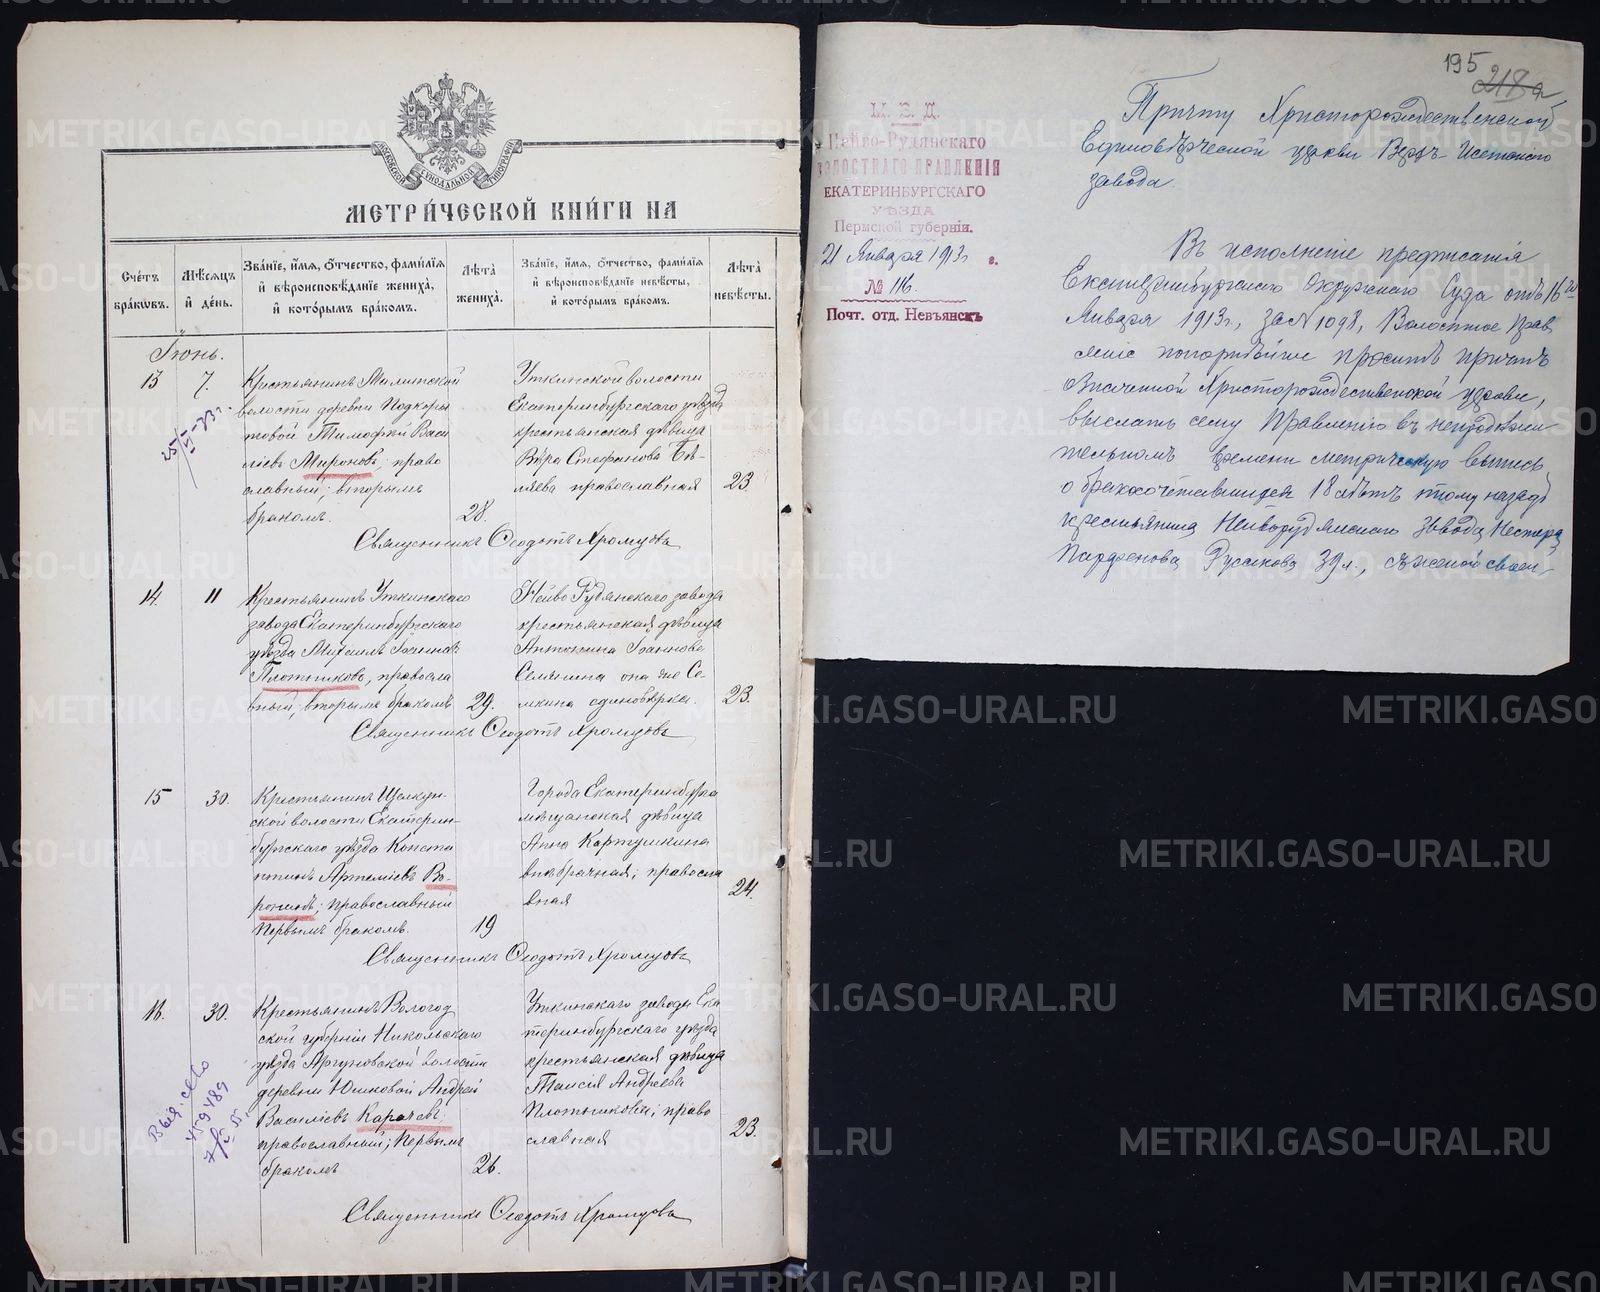 МЕТРИ́ЧЕСКОЙ КНИ́ГИ НА
Сче́тъ бра́кωвъ.
Мѣ́сяцъ и҆ де́нь.
Зва́нїе, и҆́мя, ѻ҆́тчество, фами́лїя и҆ вѣроисповѣ́данїе жениха̀, и҆ кото́рымъ бра́комъ.
Лѣ́та жениха̀.
Зва́нїе, и҆́мя, ѻ҆́тчество, фами́лїя и҆ вѣроисповѣ́данїе невѣ́сты, и҆ кото́рымъ бра́комъ.
Лѣ́та невѣ́сты.
Іюнь.
13
7.
Крестьянинъ Маминской
волости деревни Подкоры
товой Тимофей Васи
ліевъ Мироновъ, право
славный; вторымъ
бракомъ.
28.
Уткинской волости
Екатеринбургскаго уѣзда
крестьянская дѣвица
Вѣра Стефанова Бѣ-
ляева православная
23.
Священникъ Ѳеодотъ Хромцовъ
14.
11
Крестьянинъ Уткинскаго
завода Екатеринбургскаго
уѣзда Михаилъ Іоанновъ
Плотниковъ, правосла
вный; вторымъ бракомъ
29.
Нейво Рудянскаго завода
крестьянская дѣвица
Антонина Іоаннова
Семянина она же Се-
мкина единовѣрка.
23.
Священникъ Ѳеодотъ Хромцовъ
15
30.
Крестьянинъ Щелкун-
ской волости Екатерин-
бургскаго уѣзда Конста
нтинъ Артеміевъ Во-
ронинъ; православный
первымъ бракомъ.
19
Города Екатеринбурга
мѣщанская дѣвица
Анна Картушкина
внѣбрачная; правосла
вная
24.
Священникъ Ѳеодотъ Хромцовъ
16.
30.
Крестьянинъ Вологод
ской губерніи Никольскаго
уѣзда Аргуновской волости
деревни Юшковой Андрей
Василіевъ Карачевъ
православный; первымъ
бракомъ
26.
Уткинскаго завода Ека
теринбургскаго уѣзда
крестьянская дѣвица
Таисія Андреева
Плотникова; право
славная
23.
Священникъ Ѳеодотъ Хромцовъ
459489
195
218а
М. В. Д.
Нейво-Рудянскаго
ВОЛОСТНАГО ПРАВЛЕНІЯ
ЕКАТЕРИНБУРГСКАГО
УѢЗДА
Пермской губерніи.
21 Января 1913 г.
№ 116
Почт. отд. Невьянскъ
Причту Христорождественской
Единовѣрческой церкви Верхъ-Исетскаго
завода.
Въ исполненіе предписанія
Екатеринбургскаго Окружнаго Суда отъ 16го
Января 1913 г., за № 1098, Волостное Прав
леніе покорнѣйше проситъ причтъ
означенной Христорождественской церкви,
выслать сему Правленію въ непродолжи
тельномъ времени метрическую выпись
о бракосочетавшемся 18 лѣтъ тому назадъ
крестьянина Нейворудянскаго завода Нестера
Парфенова Русакова 39 л., съ женой своей
METRIKI.GASO-URAL.RU